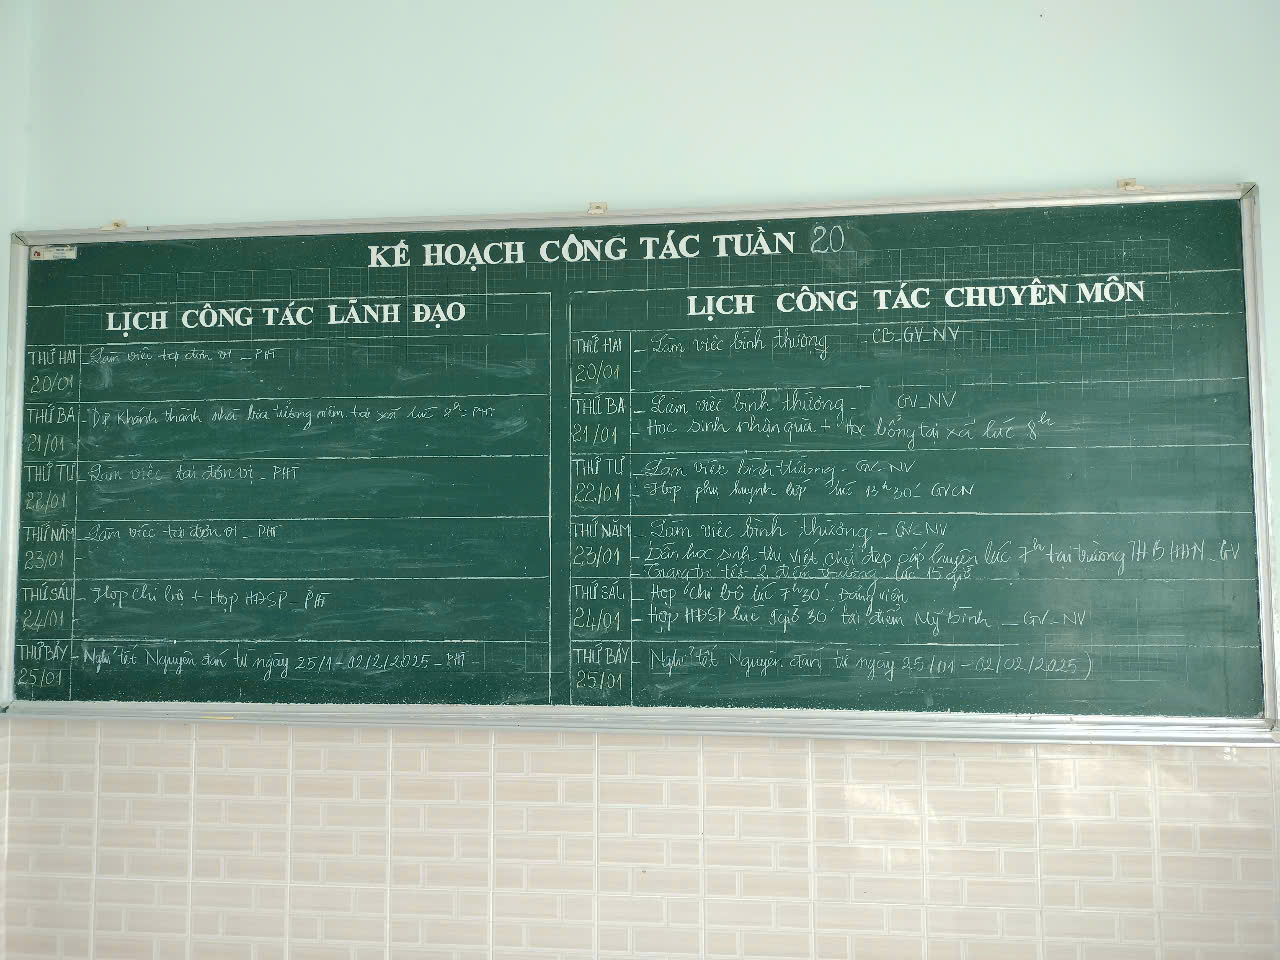 KẾ HOẠCH CÔNG TÁC TUẦN 20
LỊCH CÔNG TÁC LÃNH ĐẠO
THỨ HAI - Làm việc tại đơn vị - PHT
20/01
THỨ BA - Dự Khánh thành nhà tại xã lúc 8h - PHT
21/01
THỨ TƯ - Làm việc tại đơn vị - PHT
22/01
THỨ NĂM - Làm việc tại đơn vị - PHT
23/01 -
THỨ SÁU - Họp chi bộ + Họp HĐSP - PHT
24/01
THỨ BẢY - Nghỉ tết Nguyên đán từ ngày 25/1 - 02/2/2025 - PHT
25/01
LỊCH CÔNG TÁC CHUYÊN MÔN
THỨ HAI - Làm việc bình thường - CB-GV-NV
20/01 -
THỨ BA - Làm việc bình thường - GV-NV
21/01 - Học sinh nhận quà + Học bổng tại xã lúc 8h
THỨ TƯ - Làm việc bình thường - GV-NV
22/01 - Họp phụ huynh lớp lúc 13h30' GVCN
THỨ NĂM - Làm việc bình thường - GV-NV
23/01 - Dẫn học sinh thi viết chữ đẹp cấp huyện lúc 7h tại trường TH B HHN - GV
- Trang trí tết 2 điểm trường lúc 15 giờ
THỨ SÁU - Họp chi bộ lúc 7h30' Đảng viên
24/01 - Họp HĐSP lúc 9giờ 30' tại điểm Mỹ Bình - GV-NV
THỨ BẢY - Nghỉ tết Nguyên đán từ ngày 25/01 - 02/02/2025)
25/01